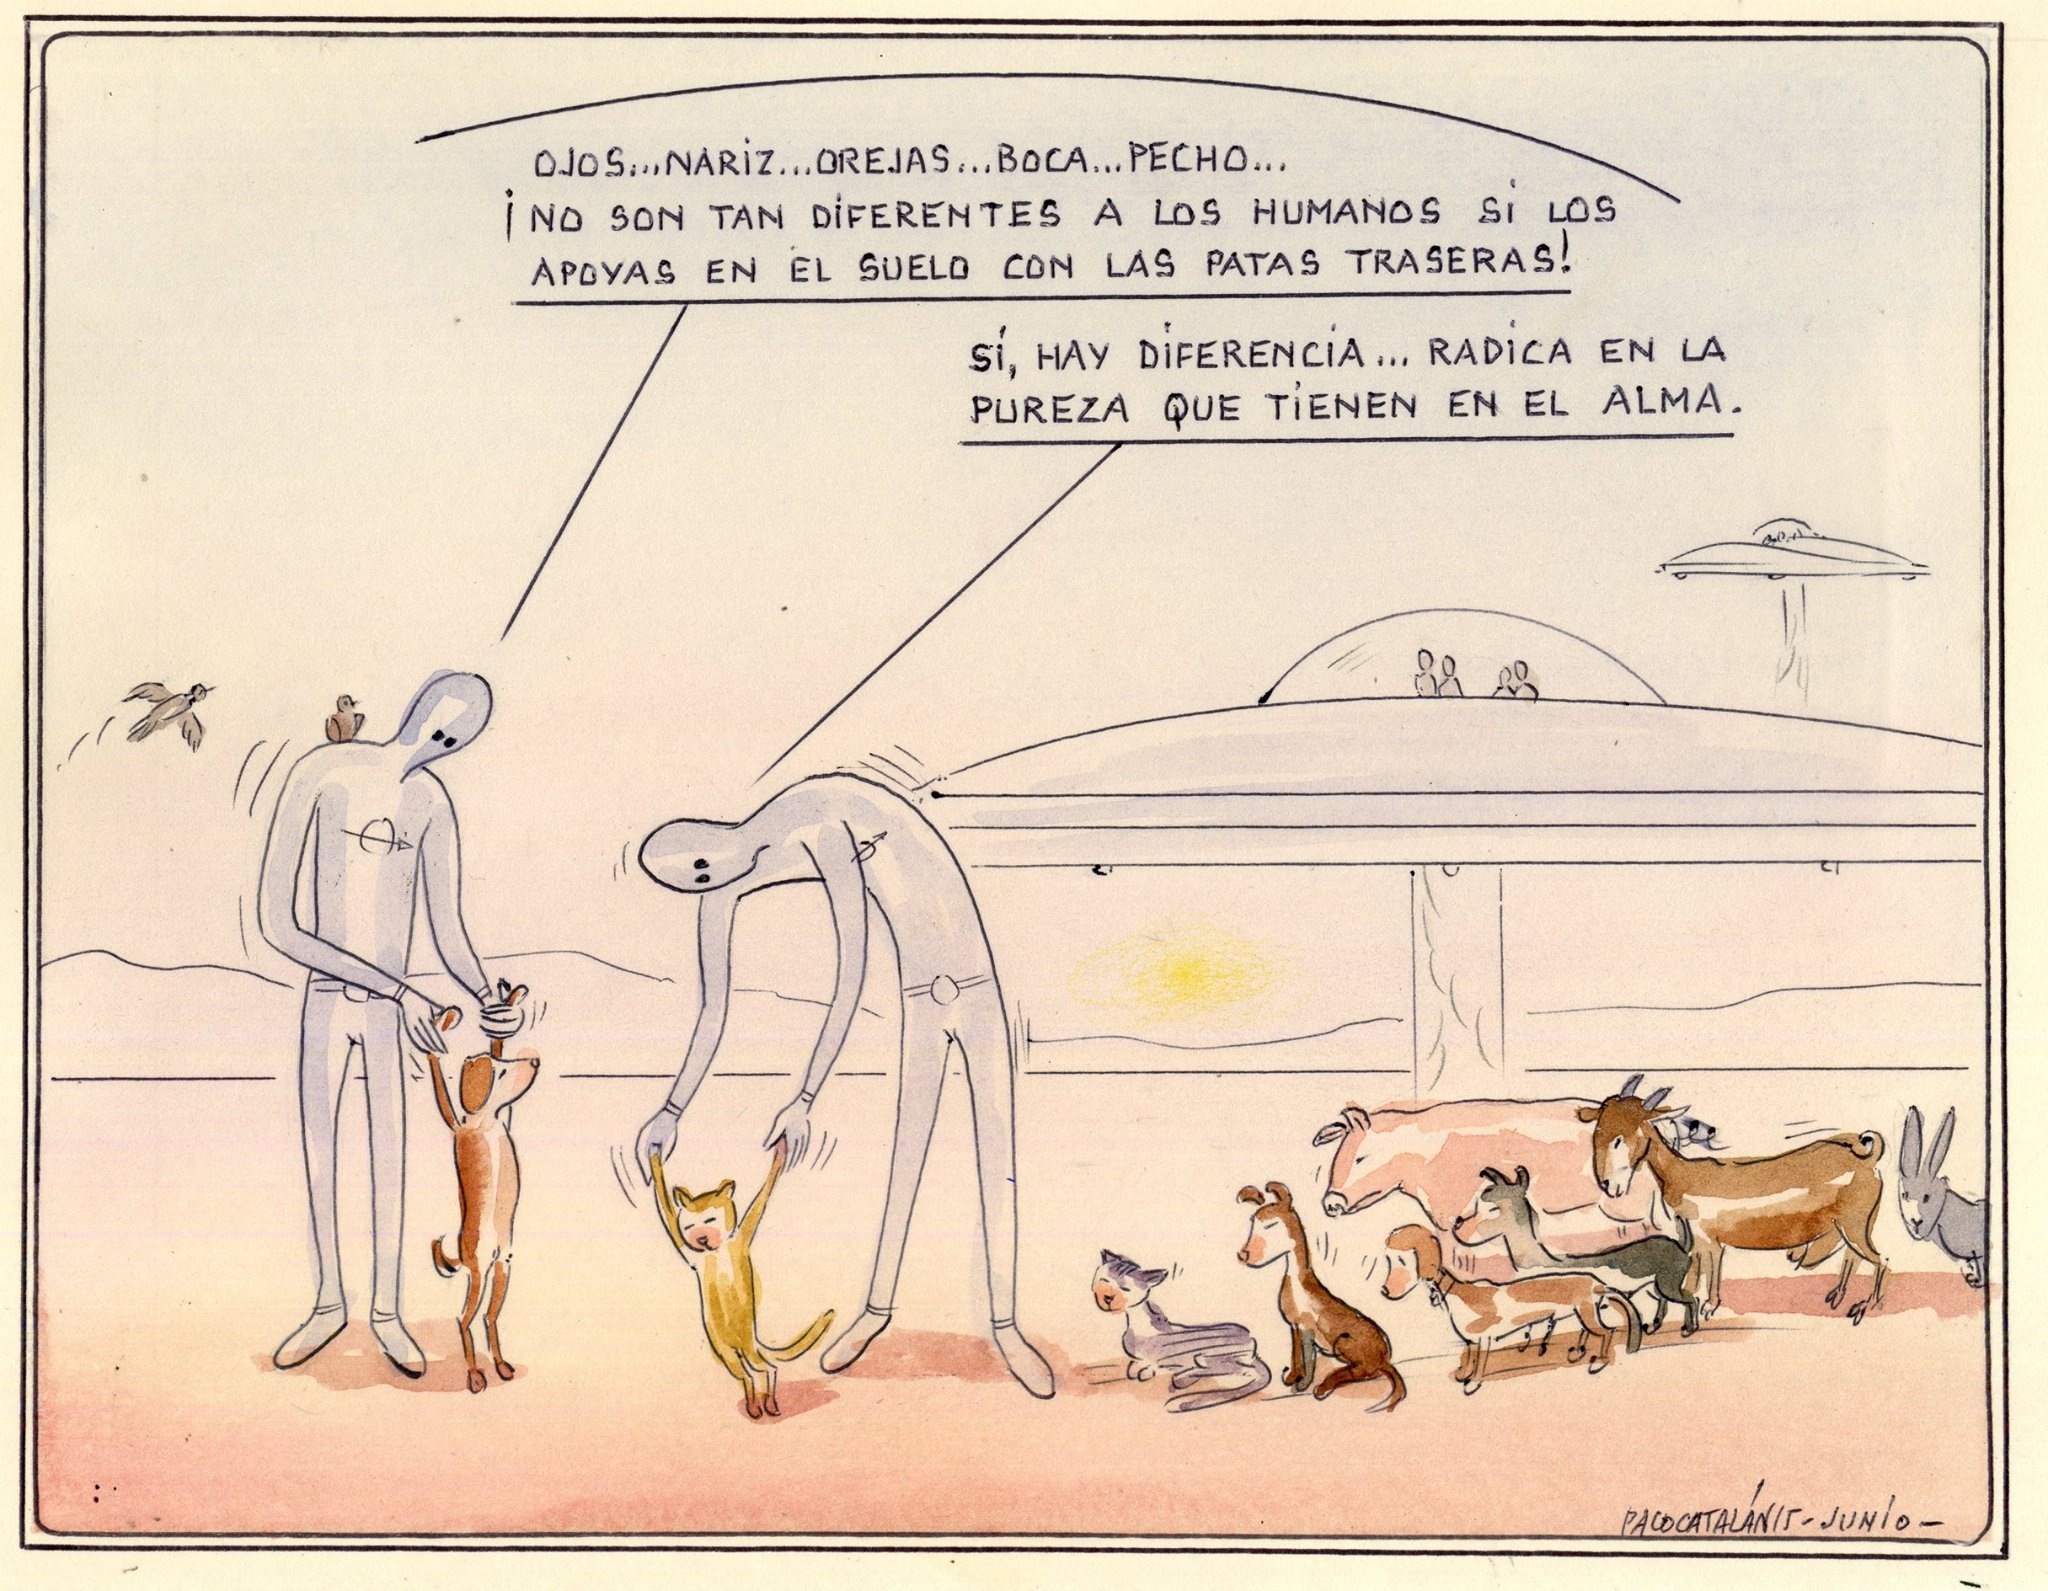 OJOS...NARIZ...OREJAS...BOCA...PECHO...
¡NO SON TAN DIFERENTES A LOS HUMANOS SI LOS
APOYAS EN EL SUELO CON LAS PATAS TRASERAS!
SÍ, HAY DIFERENCIA... RADICA EN LA
PUREZA QUE TIENEN EN EL ALMA.
PACOCATALÁN15-JUNIO-